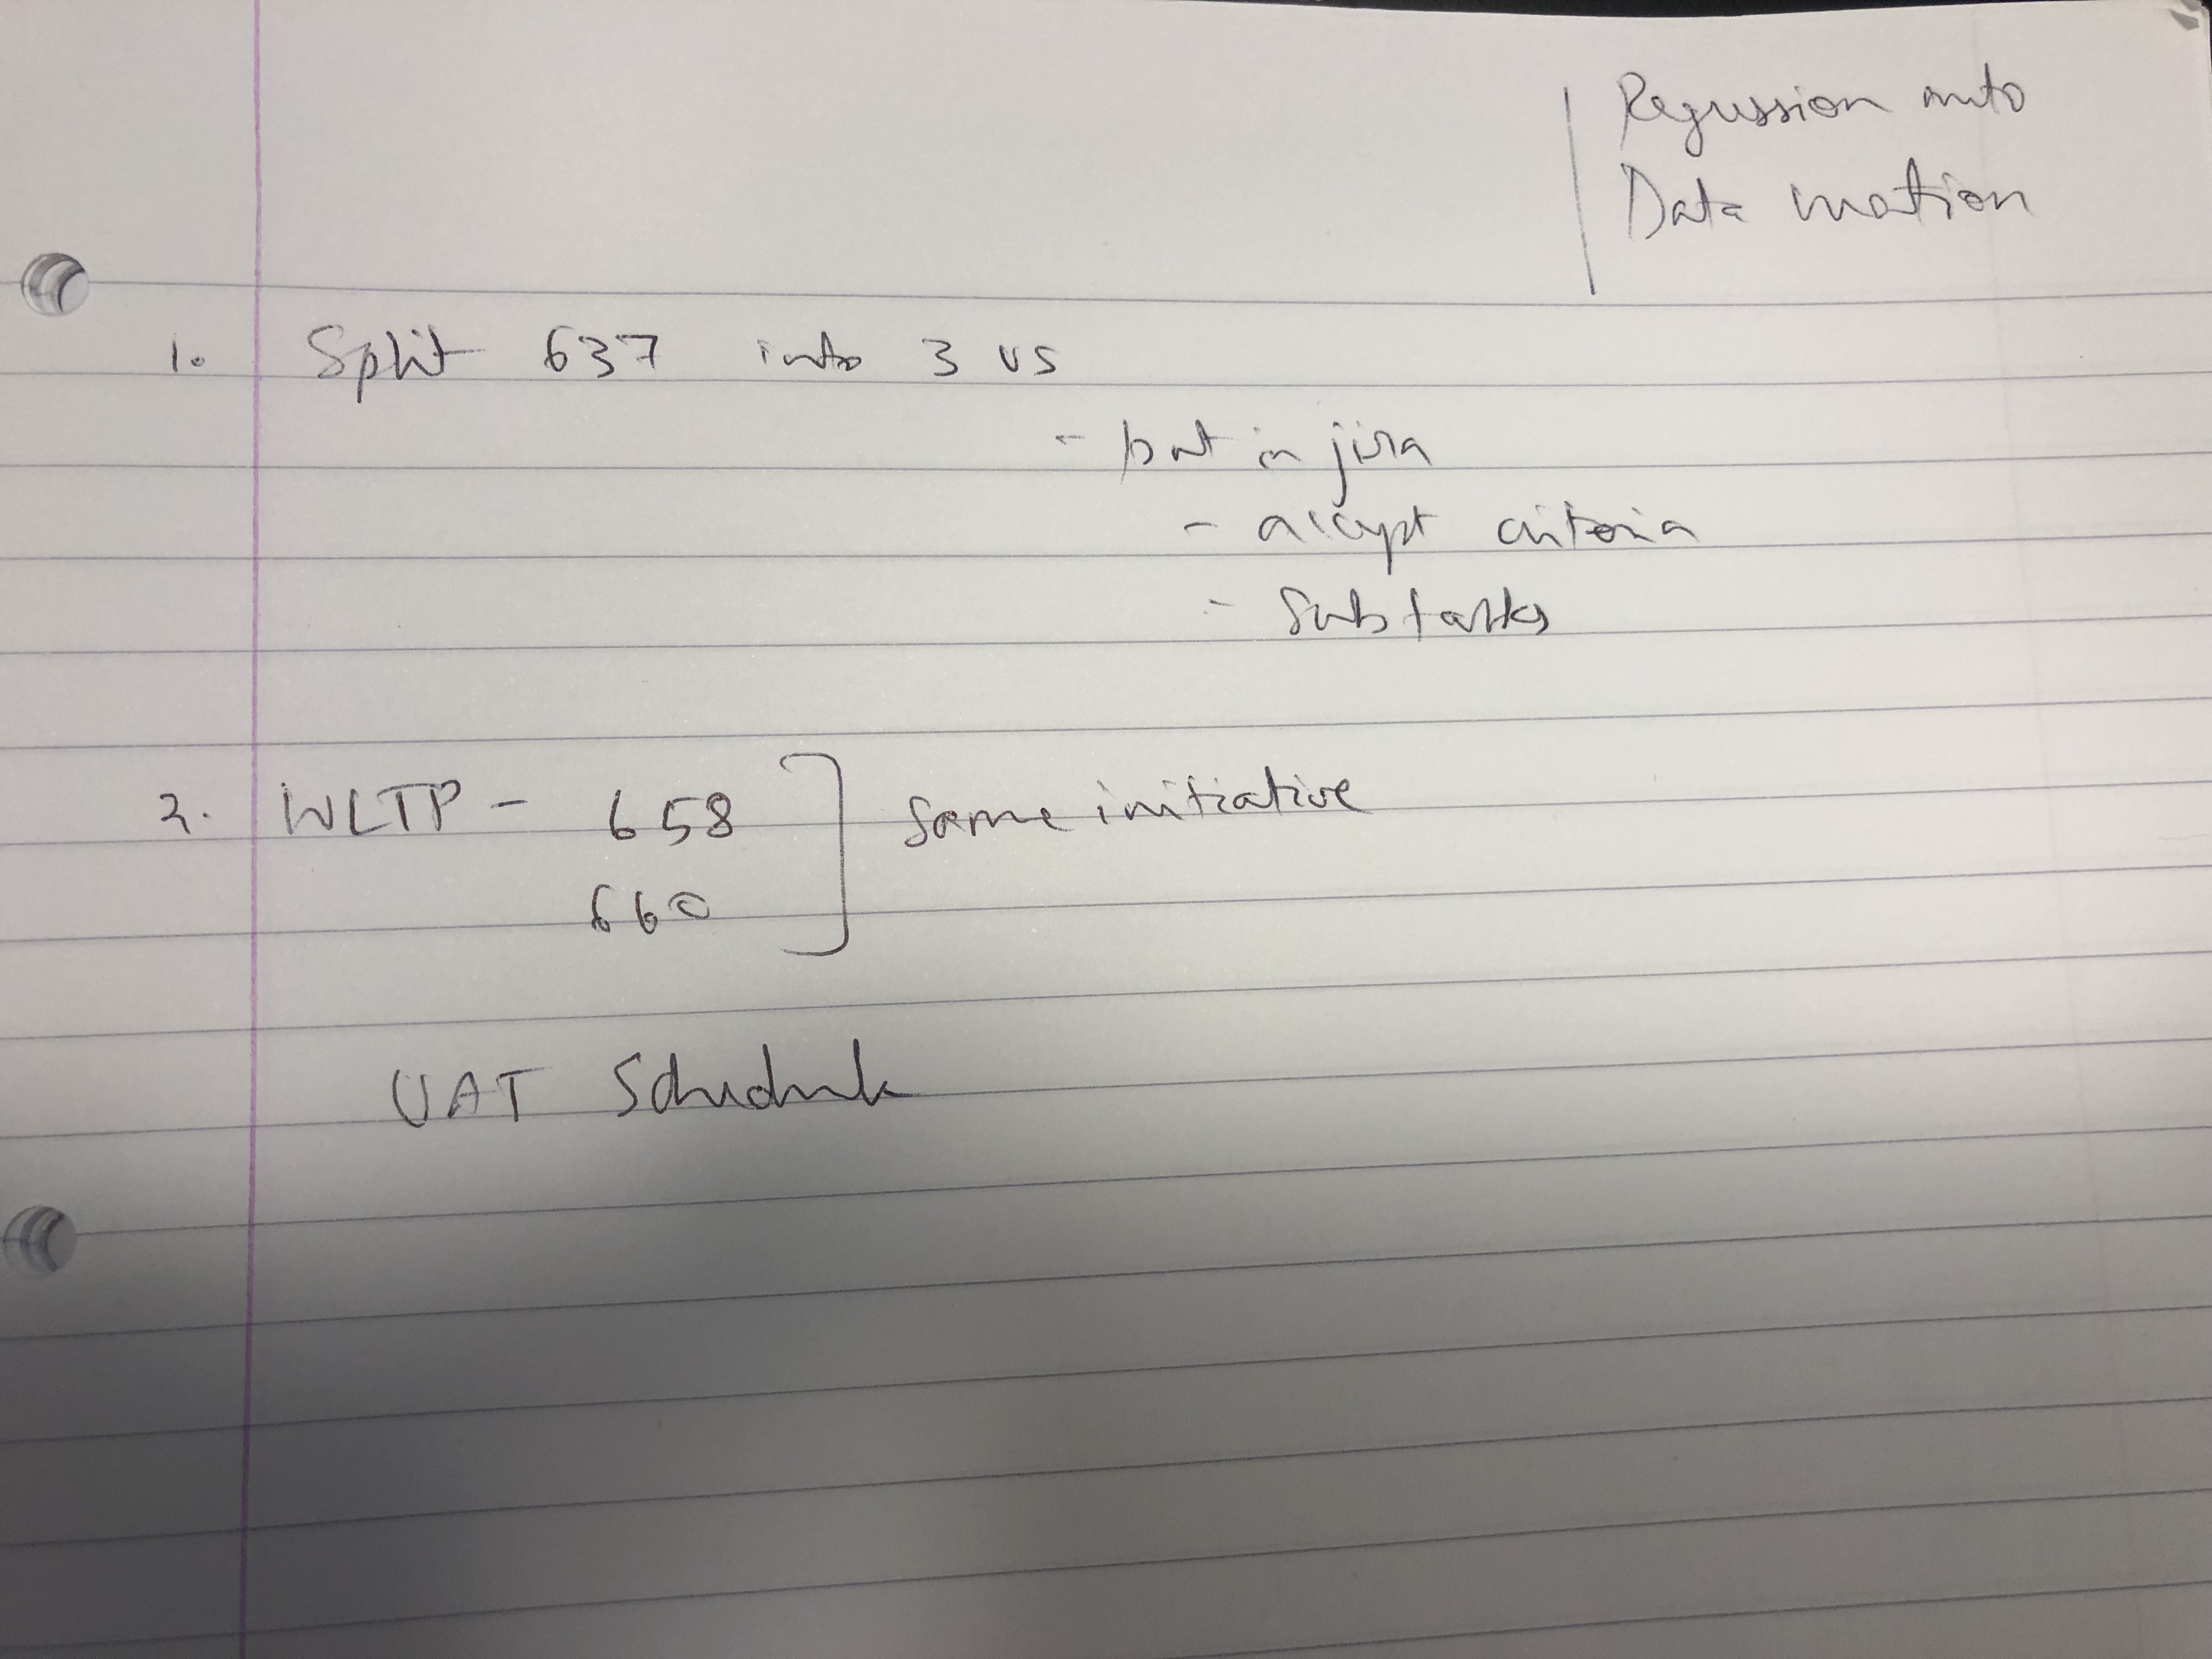 Regression auto
Data motion
1. Split 637 into 3 US
- put in jira
- accept criteria
- Sub tasks
2. WLTP - 658
660
Same initiative
UAT Schedule